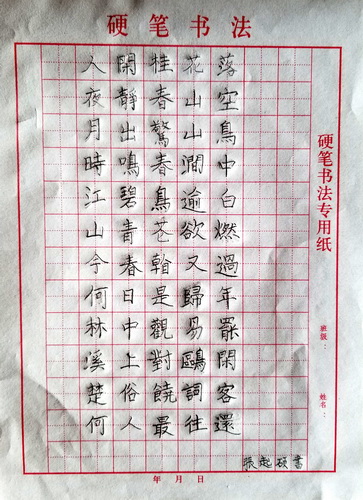 硬笔书法
人閑桂花落
夜靜春山空
月出驚山鳥
時鳴春澗中
江碧鳥逾白
山青花欲燃
今春看又過
何日是歸年
林中觀易罷
溪上對鷗閑
楚俗饒詞客
何人最往還
硬笔书法专用纸
班级：
姓名：
張起硕書
年 月 日